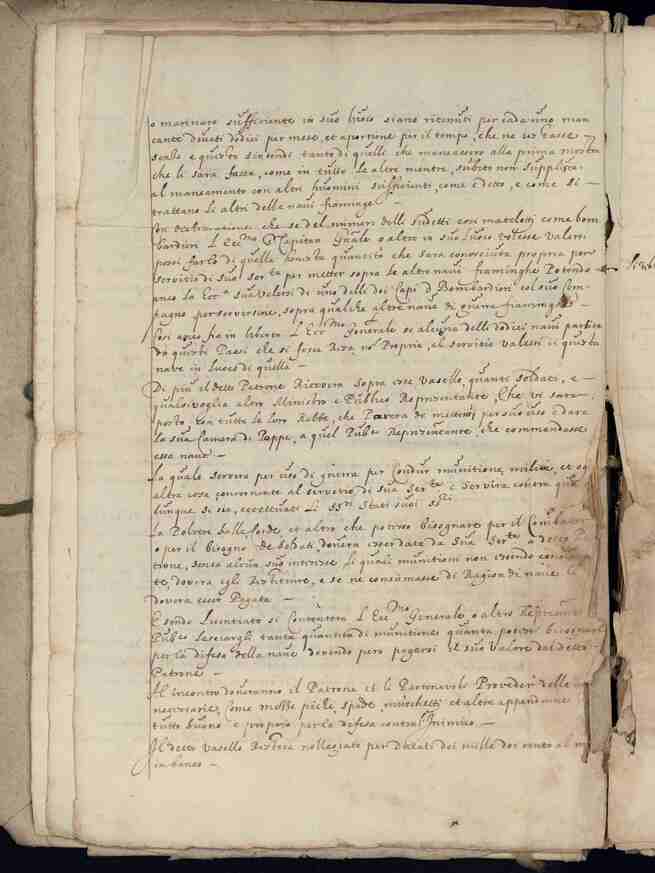 o marinaro sufficiente in suo luoco siano ritenuti per cadauno man
cante ducati dodici per mese, et aportione per il tempo, che ne ser
e questo s'intendi tanto di quelli che mancassero alla prima mostra
che li sara fatta, come in tutte le altre mentre, subito non supplisca
al mancamento con altri huomini sufficienti, come è detto, e come si
trattano li altri delle naui fiaminge
In dechiaratione che se del numero delli sudetti cosi mateloti come bom
bardieri L Ecc.mo S.r Capitan Gñale o altro in suo luoco volesse valersi
possi farlo di quella honesta quantità che sara conosciuta propria per
seruitio di sua Ser.ta per metter sopra le altre naui fiaminghe Potendo
anco la Ecc.a sua valersi di uno delli doi Capi di Bombardieri col suo Com
pagno per seruirsene, sopra qualche altra naue di guerra fiamminga
Cosi anco ha in liberta L Ecc.mo Generale se alcuna delli dodici naui partira
da questi Paesi che si fosse Resa no Propria, al seruitio valersi di questa
naue in luoco di quella
Di più il detto Patrone Riceuera sopra esso Vasello, quanti soldati, e
qualsiuoglia altro Ministro e Publico Representante Che vi sara
posto con tutte le loro Robbe, che Parera de mettersi per suo uso è dara
la sua Camera di Poppe, a quel Pub.co Representante, che commandasse
essa naue
La quale seruira per uso di guerra per Condur munitione, militie, et og
altra cosa concernente al seruitio di sua Ser.ta è seruira contra qua
lunque si sia, eccettuati Li SS.ri Stati suoi SS.ri
La Poluere balle corde et altro che potesse bisognare per il Combatter
o per il bisogno de soldati, douera esser data da sua Ser.ta a detto Pa
trone, senza alcun suo interesse li quali munitioni non essendo
te, douera egli Restituire, e se ne consumasse di Ragion di naue li
douera esser Pagata
E essendo Licentiato si Contentera L Ecc.mo Generale o altro Represent
Publico lasciargli tanta quantita di munitioni quanta potesse bisognar
per la difesa della naue douendo pero pagarsi il suo valore dal detto
Patrone
Al incontro doueranno il Patrone et li Partioneuoli Proueder delle
necessarie, Come picche, spade, muschetti et altre
tutto buono e proprio per la difesa contra l'Inimico
Il detto vasello Restera nolleggiato per Ducati doi mille doi cento al m
in banco